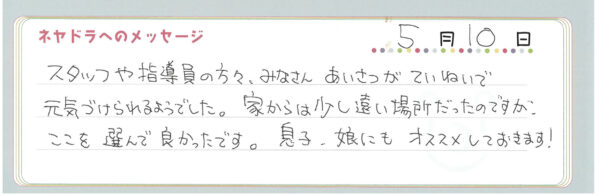 ネヤドラへのメッセージ
5月10日
スタッフや指導員の方々、みなさん あいさつが ていねいで
元気づけられるようでした。家からは少し遠い場所だったのですが、
ここを選んで良かったです。息子、娘にも オススメしておきます!